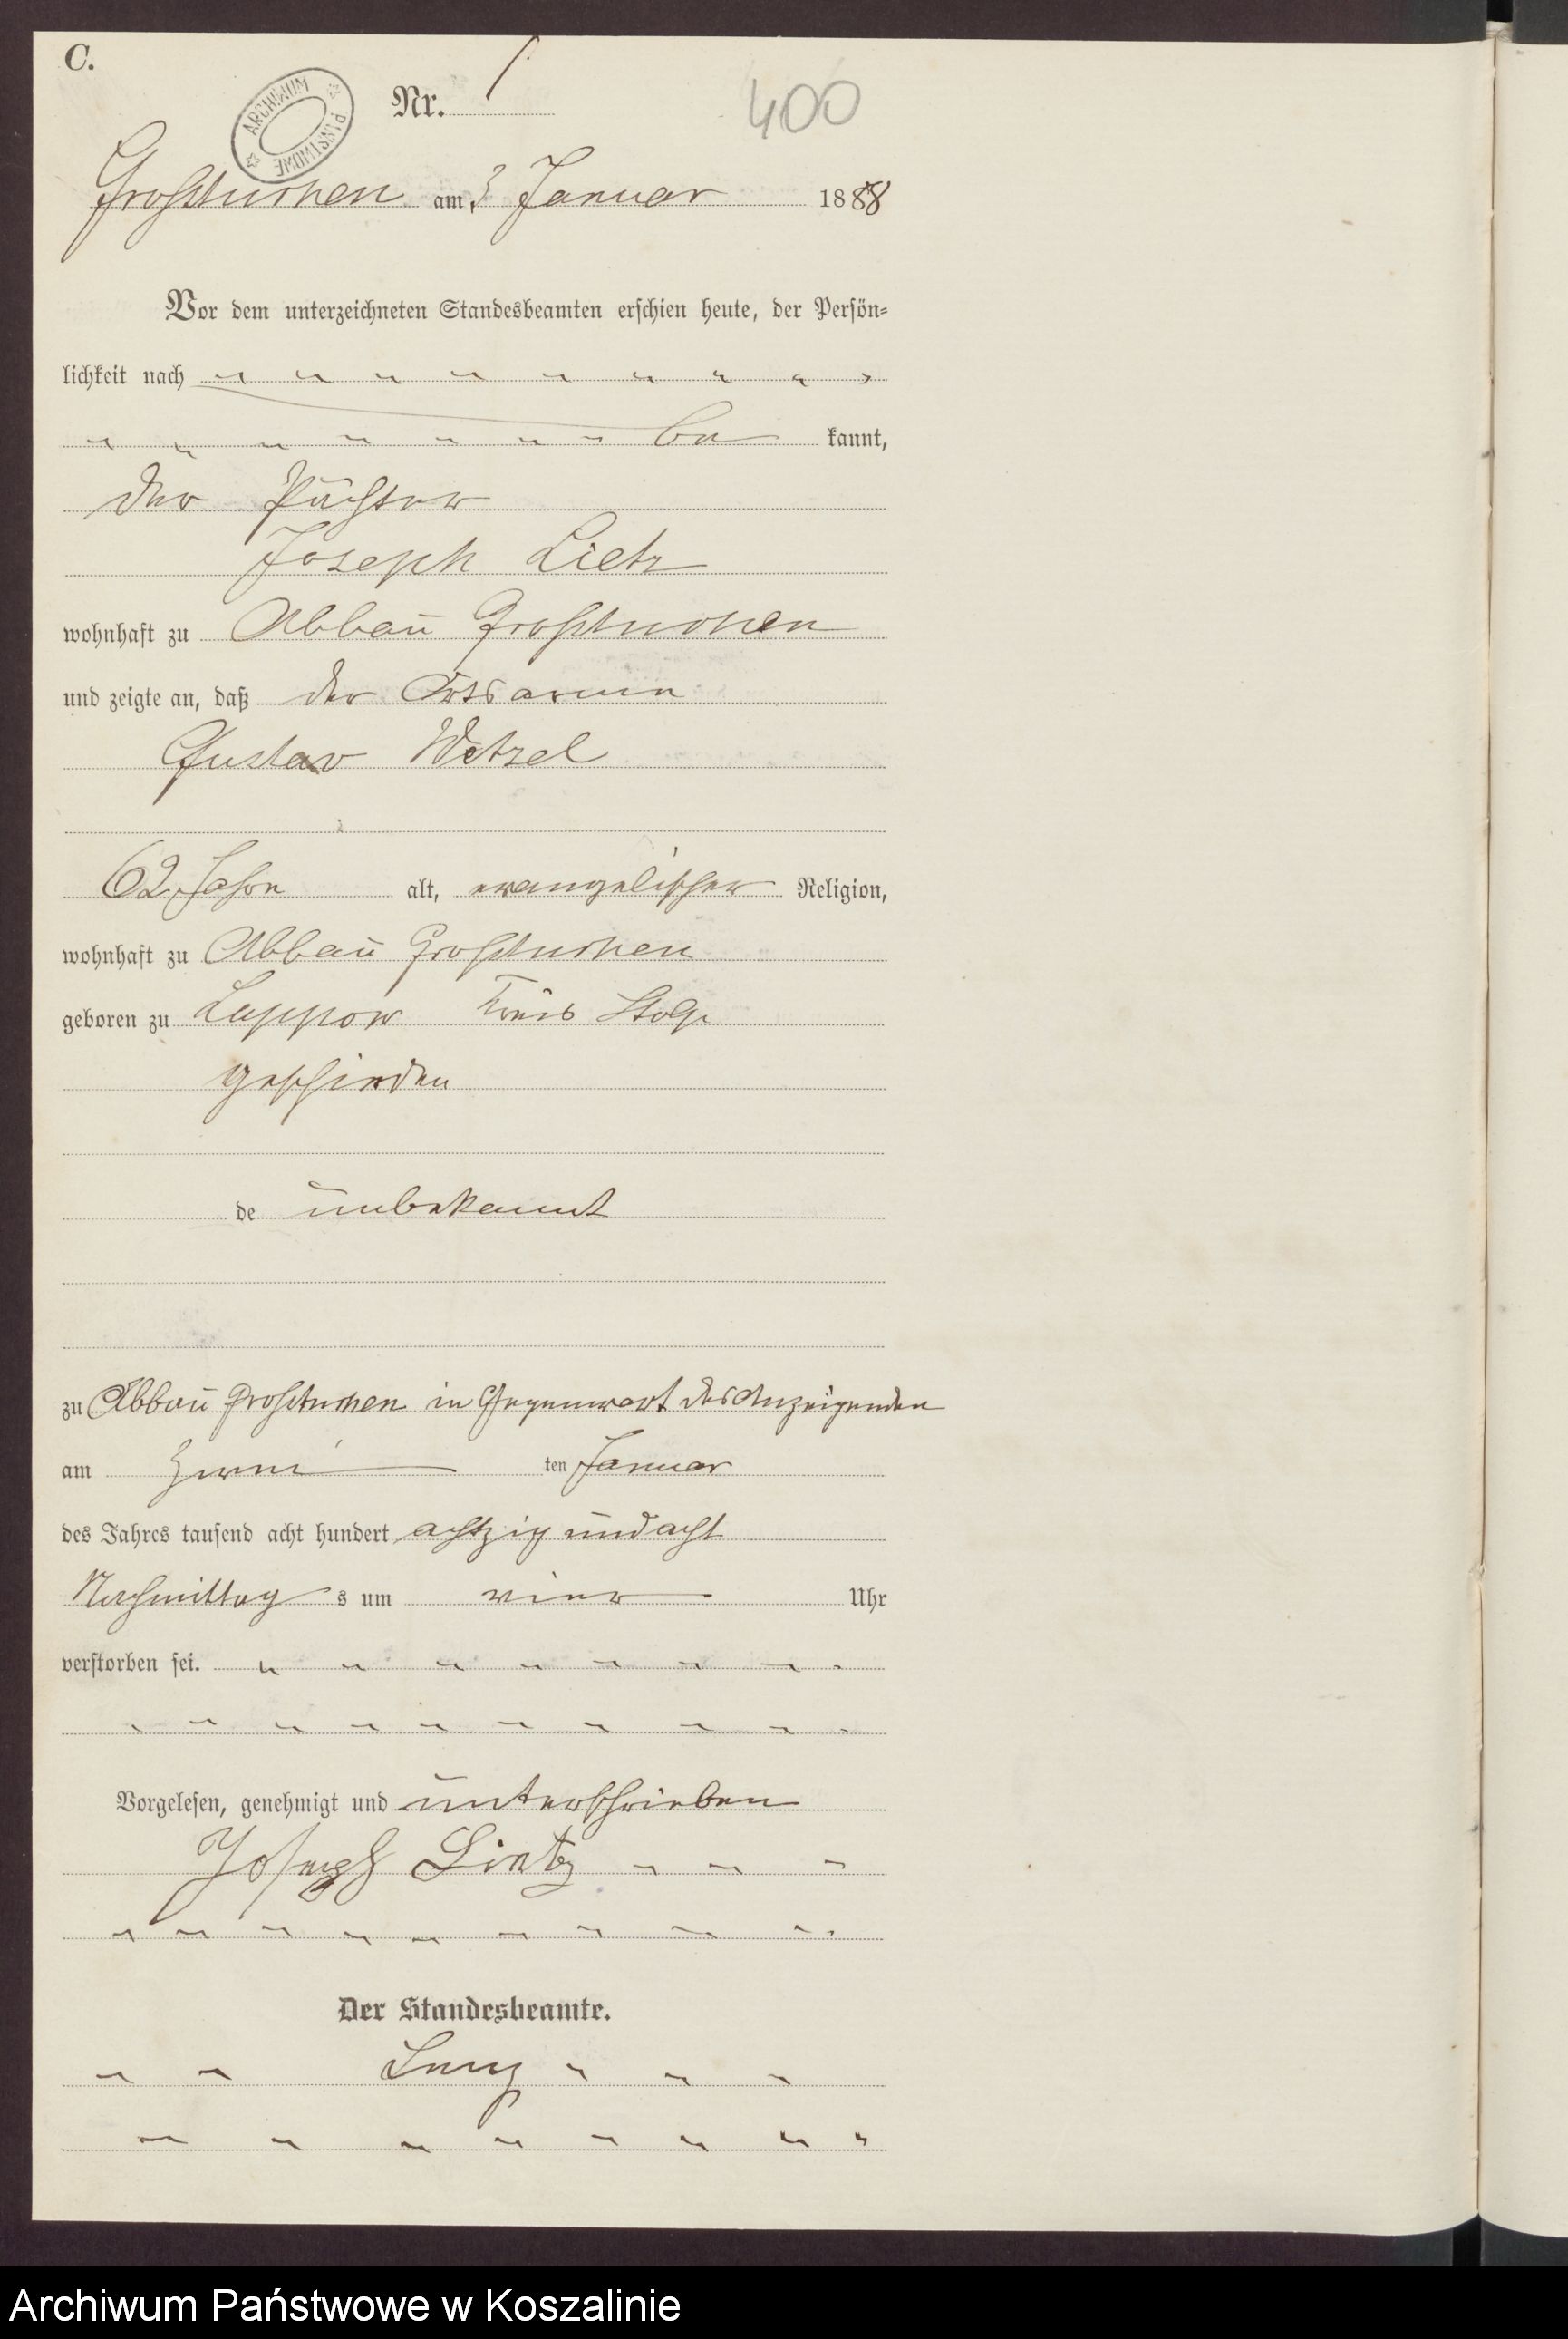 C.
ARCHIWUM PAŃSTWOWE
Nr. 1.
400
Großtuchen am 3 Januar 1888
Vor dem unterzeichneten Standesbeamten erschien heute, der Persön-
lichkeit nach
be kannt,
der Pächter
Joseph Lietz
wohnhaft zu Abbau Großtuchen
und zeigte an, daß der Ortsarme
Gustav Wetzel
62 Jahre alt, evangelischer Religion,
wohnhaft zu Abbau Großtuchen
geboren zu Luppow Kreis Stolp
geschieden
de unbekannt
zu Abbau Großtuchen in Gegenwart des Anzeigenden
am zwei ten Januar
des Jahres tausend acht hundert achtzig und acht
Nachmittag s um vier Uhr
verstorben sei.
Vorgelesen, genehmigt und unterschrieben
Joseph Lietz
Der Standesbeamte.
Archiwum Państwowe w Koszalinie